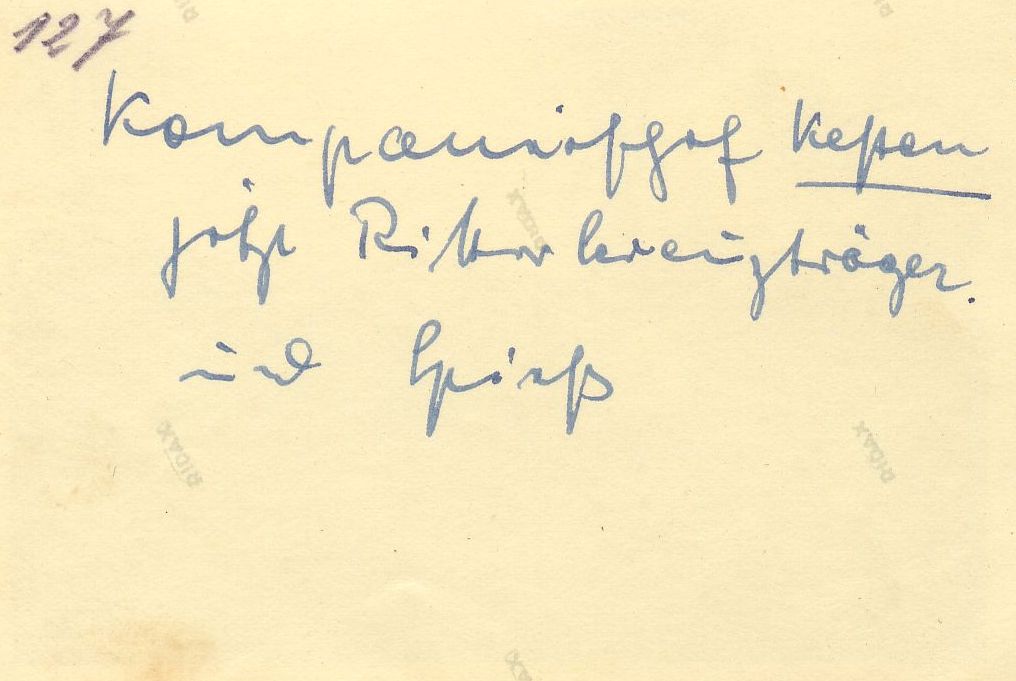 127
Kompaniechef Kessen
jetzt Ritterkreuzträger.
und Spieß
RIDAX
RIDAX
RIDAX